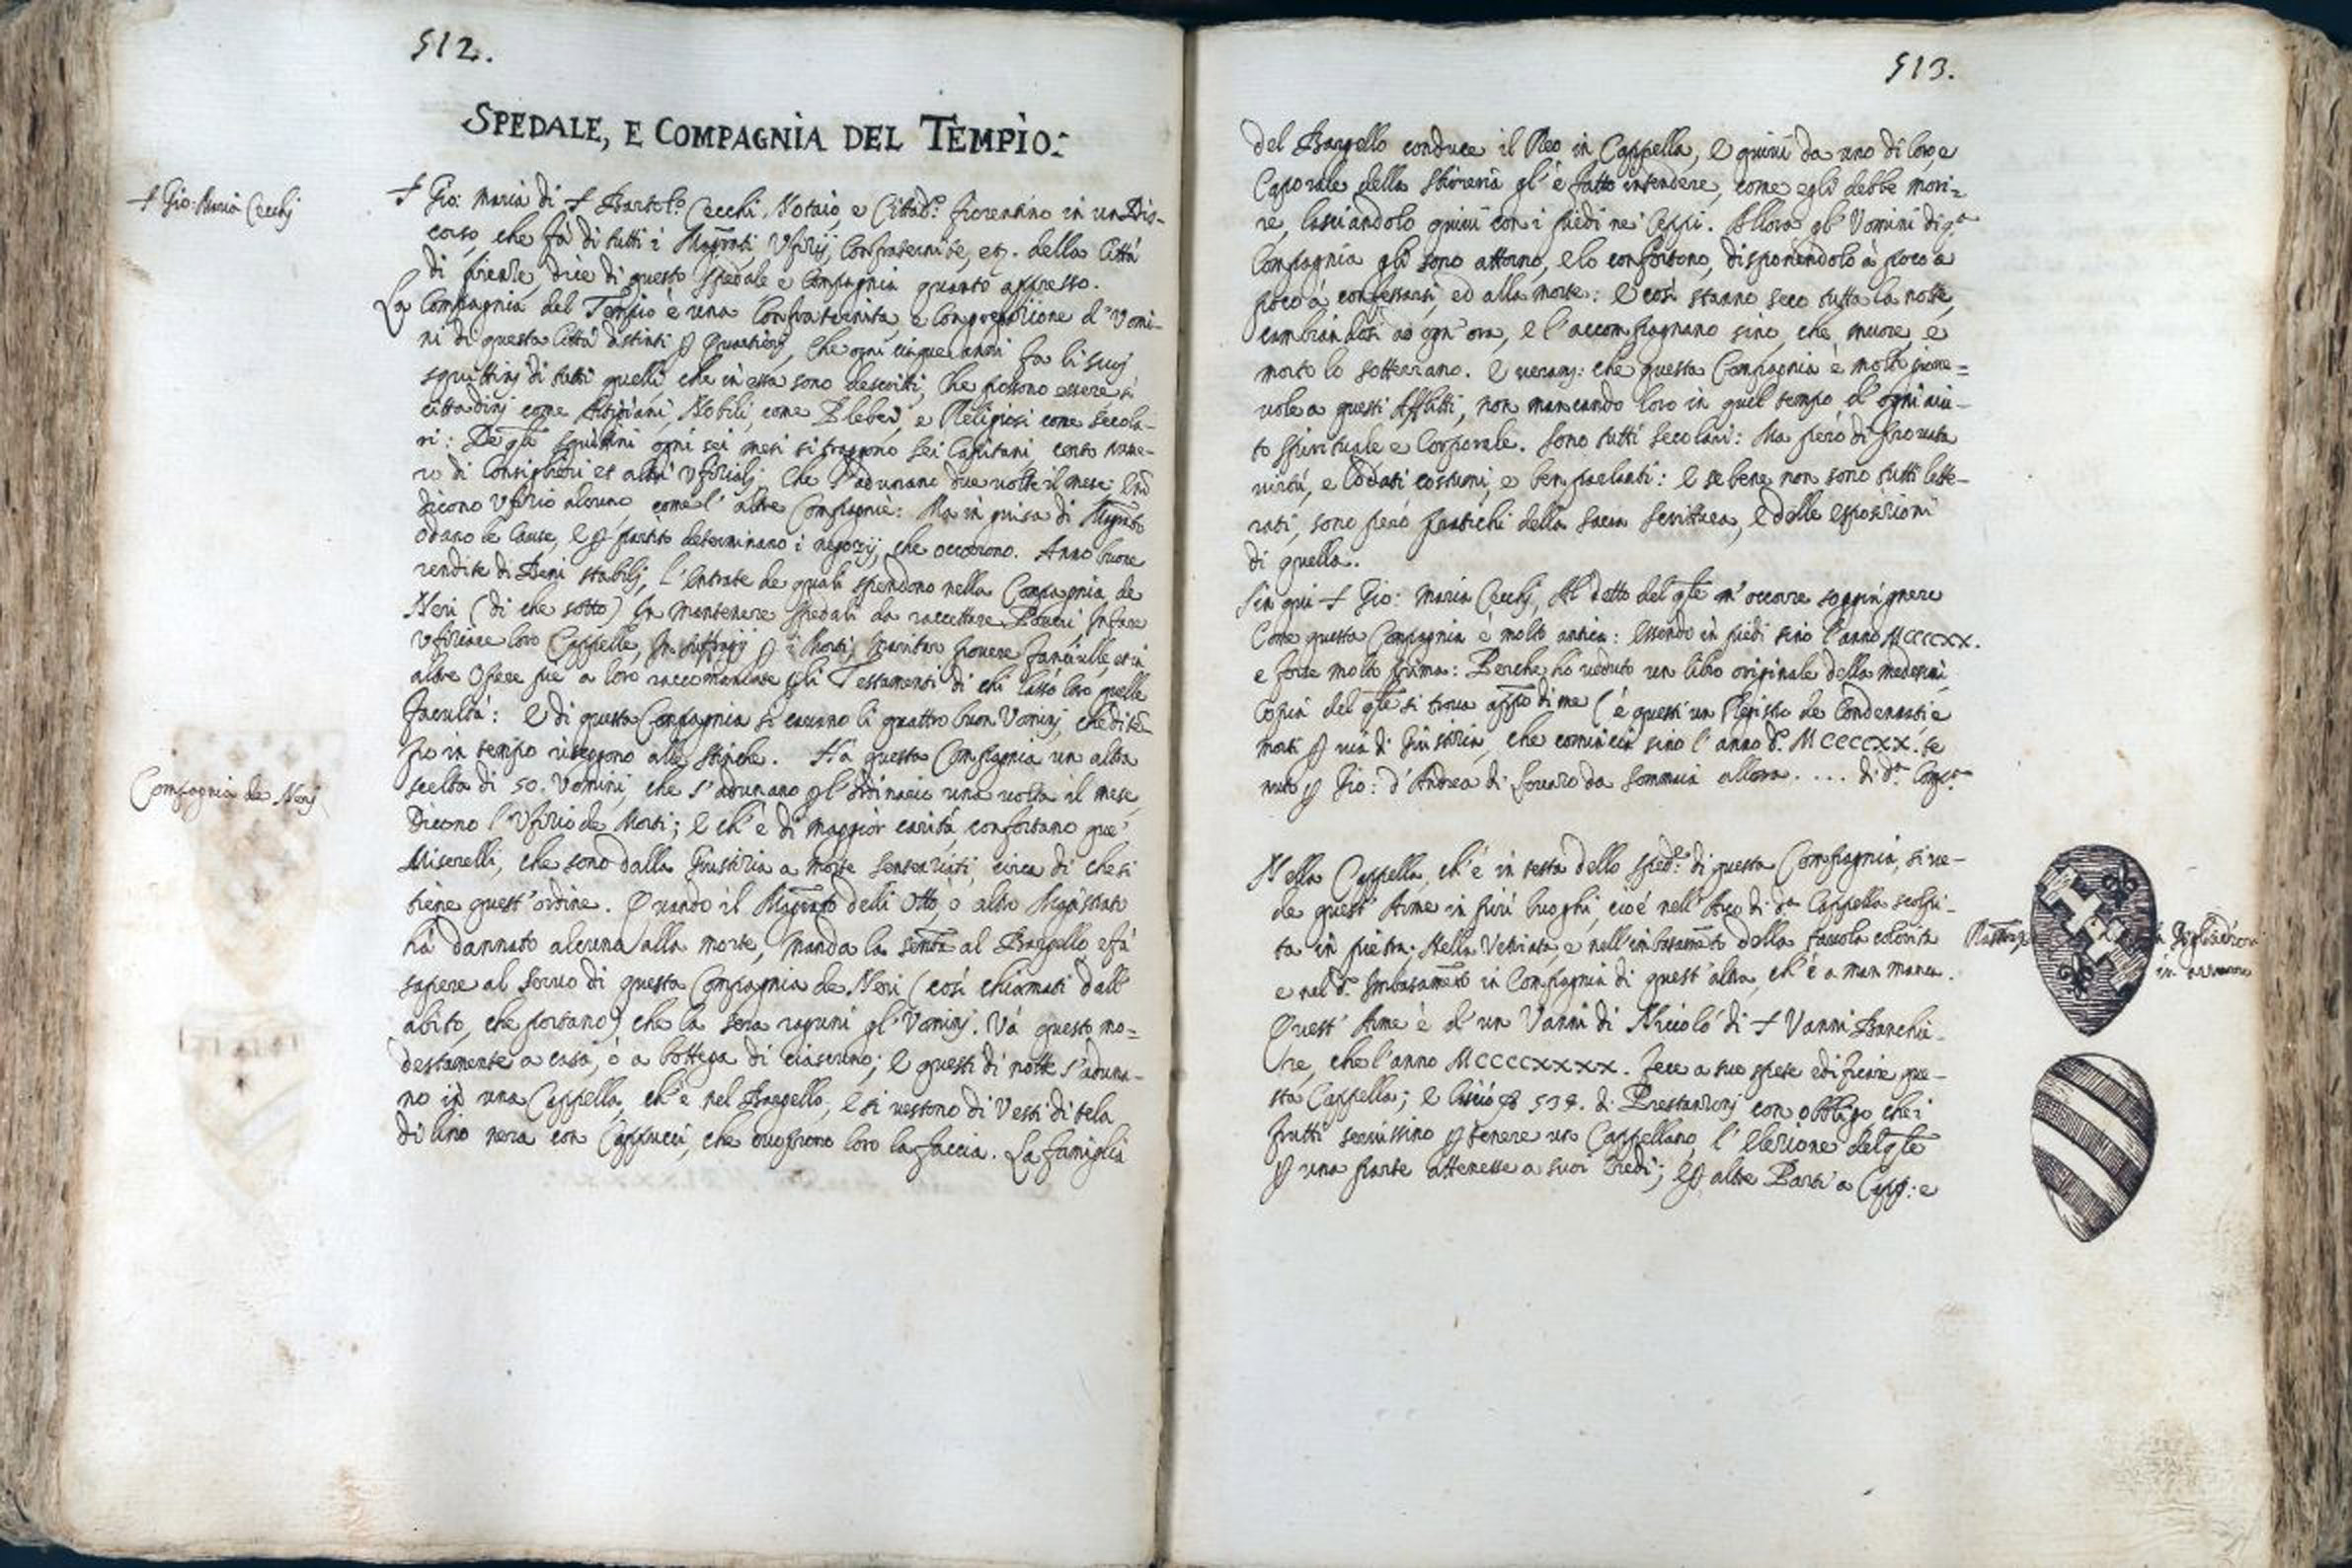 512.
SPEDALE, E COMPAGNIA DEL TEMPIO:
Gio: Maria Cecchj
Gio: Maria di Bartol.º Cecchi Notaio, e Cittad.º fiorentino in un Dis-
corso, che fà di tutti i Magrati, Vfizij, Confraternite, et. della Città
di firenze, dice di questo Spedale e Compagnia quanto appresso.
La Compagnia del Tempio è una Confraternita, e Congregazione d'Vomi-
ni di questa Città distinti Quartierj, che ogni cinque anni fa li suoj
squittinj di tutti quelli, che in essa sono descritti, che possono essere sì
cittadinj come Artigiani, Nobili, come Plebei, e Religiosi come Secola-
ri: De qli squittini ogni sei mesi si traggono sei Capitani, certo nume-
ro di Consiglieri et altri Vfizialj, che s'adunano due volte il mese: E nõ
dicono Vfizio alcuno come l'altre Compagnie: Ma in guisa di Magrato
odano le Cause, e partito determinano i negozij, che occorono. Anno buone
rendite di Beni stabilj, l'Entrate de quali spendono nella Compagnia de
Neri (di che sotto) In mantenere Spedali da raccettare Poveri Infare
Vfiziare loro Cappelle, In suffragij i Morti, maritar povere fanciulle et in
altre Opere pie a loro raccomandate gli Testamenti di chi lassò loro quelle
facultà: E di questa Compagnia si cavano li quattro buon Vominj, che di tẽ-
po in tempo riseggono alle Stinche. Hà questa Compagnia un altra
scelta di 50. Vomini, che s'adunano l'ordinario una volta il mese,
Compagnia de Nerj
Dicono l'Vfizio de Morti; e ch'è di maggior carità confortano que'
Miserelli, che sono dalla Giustizia a morte sentenziati, circa di che si
tiene quest'ordine. Quando il Magrato delli Otto, o altro Magistrato
hà dannato alcuno alla morte, manda la sentã al Bargello, e fà
sapere al servo di questa Compagnia de Neri (così chiamati dall'
abito, che portano) che la sera raguni gl'Vominj. Và questo mo=
destamente a casa, ò a bottega di ciascuno; e questi di notte s'aduna-
no in una Cappella, ch'è nel Bargello, e si vestono di Vesti di tela
di lino nera con Cappucci, che cuoprono loro la faccia. La famiglia
513.
del Bargello conduce il Reo in Cappella, e quivi da uno di loro, e
Caporale della Sbirreria gl'è fatto intendere, come egli debbe mori=
re, lasciandolo quivi con i piedi ne Ceppi. Allora gl'Vomini di q.ta
Compagnia gli sono attorno, e lo confortono, disponendolo à poco a
poco à confessarsi, ed alla morte: E così stanno seco tutta la notte,
cambiandosi ad ogn'ora, e l'accompagnano sino, che muore, e
morto lo sotterrano. E che questa Compagnia è molto giove=
vole a questi Afflitti, non mancando loro in quel tempo d'ogni aiu-
to Spirituale e Corporale. Sono tutti Secolari: Ma però di provata
virtù, e lodati costumi, e ben zelanti: E se bene non sono tutti lette-
rati, sono però pratichi della Sacra Scrittura, e delle esposizioni
di quella.
Sin qui Gio: Maria Cecchj, Al detto del qle m'occorre soggiugnere
Come questa Compagnia è molto antica: essendo in piedi sino l'anno MCCCCXX.
e forse molto prima: Perche, hò veduto un libro originale della medesmã
Copia del qle si trova apprõ di me (è questi un Registro de Condennati e
morti via di Giustizia, che comincia sino l'anno d.º MCCCCXX. te
nuto Gio: d'Andrea di da Sommaia allora .... di d.ta Comp.a
Nella Cappella, ch'è in testa dello Sped.e di questa Compagnia, si ve-
de quest'Arme in più luoghi, cioè nell'Arco di d.a Cappella scolpi-
ta in pietra. Nella Vetriata, e nell'imbasamẽto della tavola colorita
e nel d.º Imbasamẽto in Compagnia di quest'altra, ch'è a man manca.
Quest'Arme è d'un Vanni di Niccolò di Vanni
che l'anno MCCCCXXXX. fece a sue spese edificare que-
sta Cappella; e lasciò di Prestanzonj con obbligo che i
frutti servissino tenere un Cappellano, l'Elezione del qle
una parte attenesse a suoi Eredi; E altre Parti a Capp: e